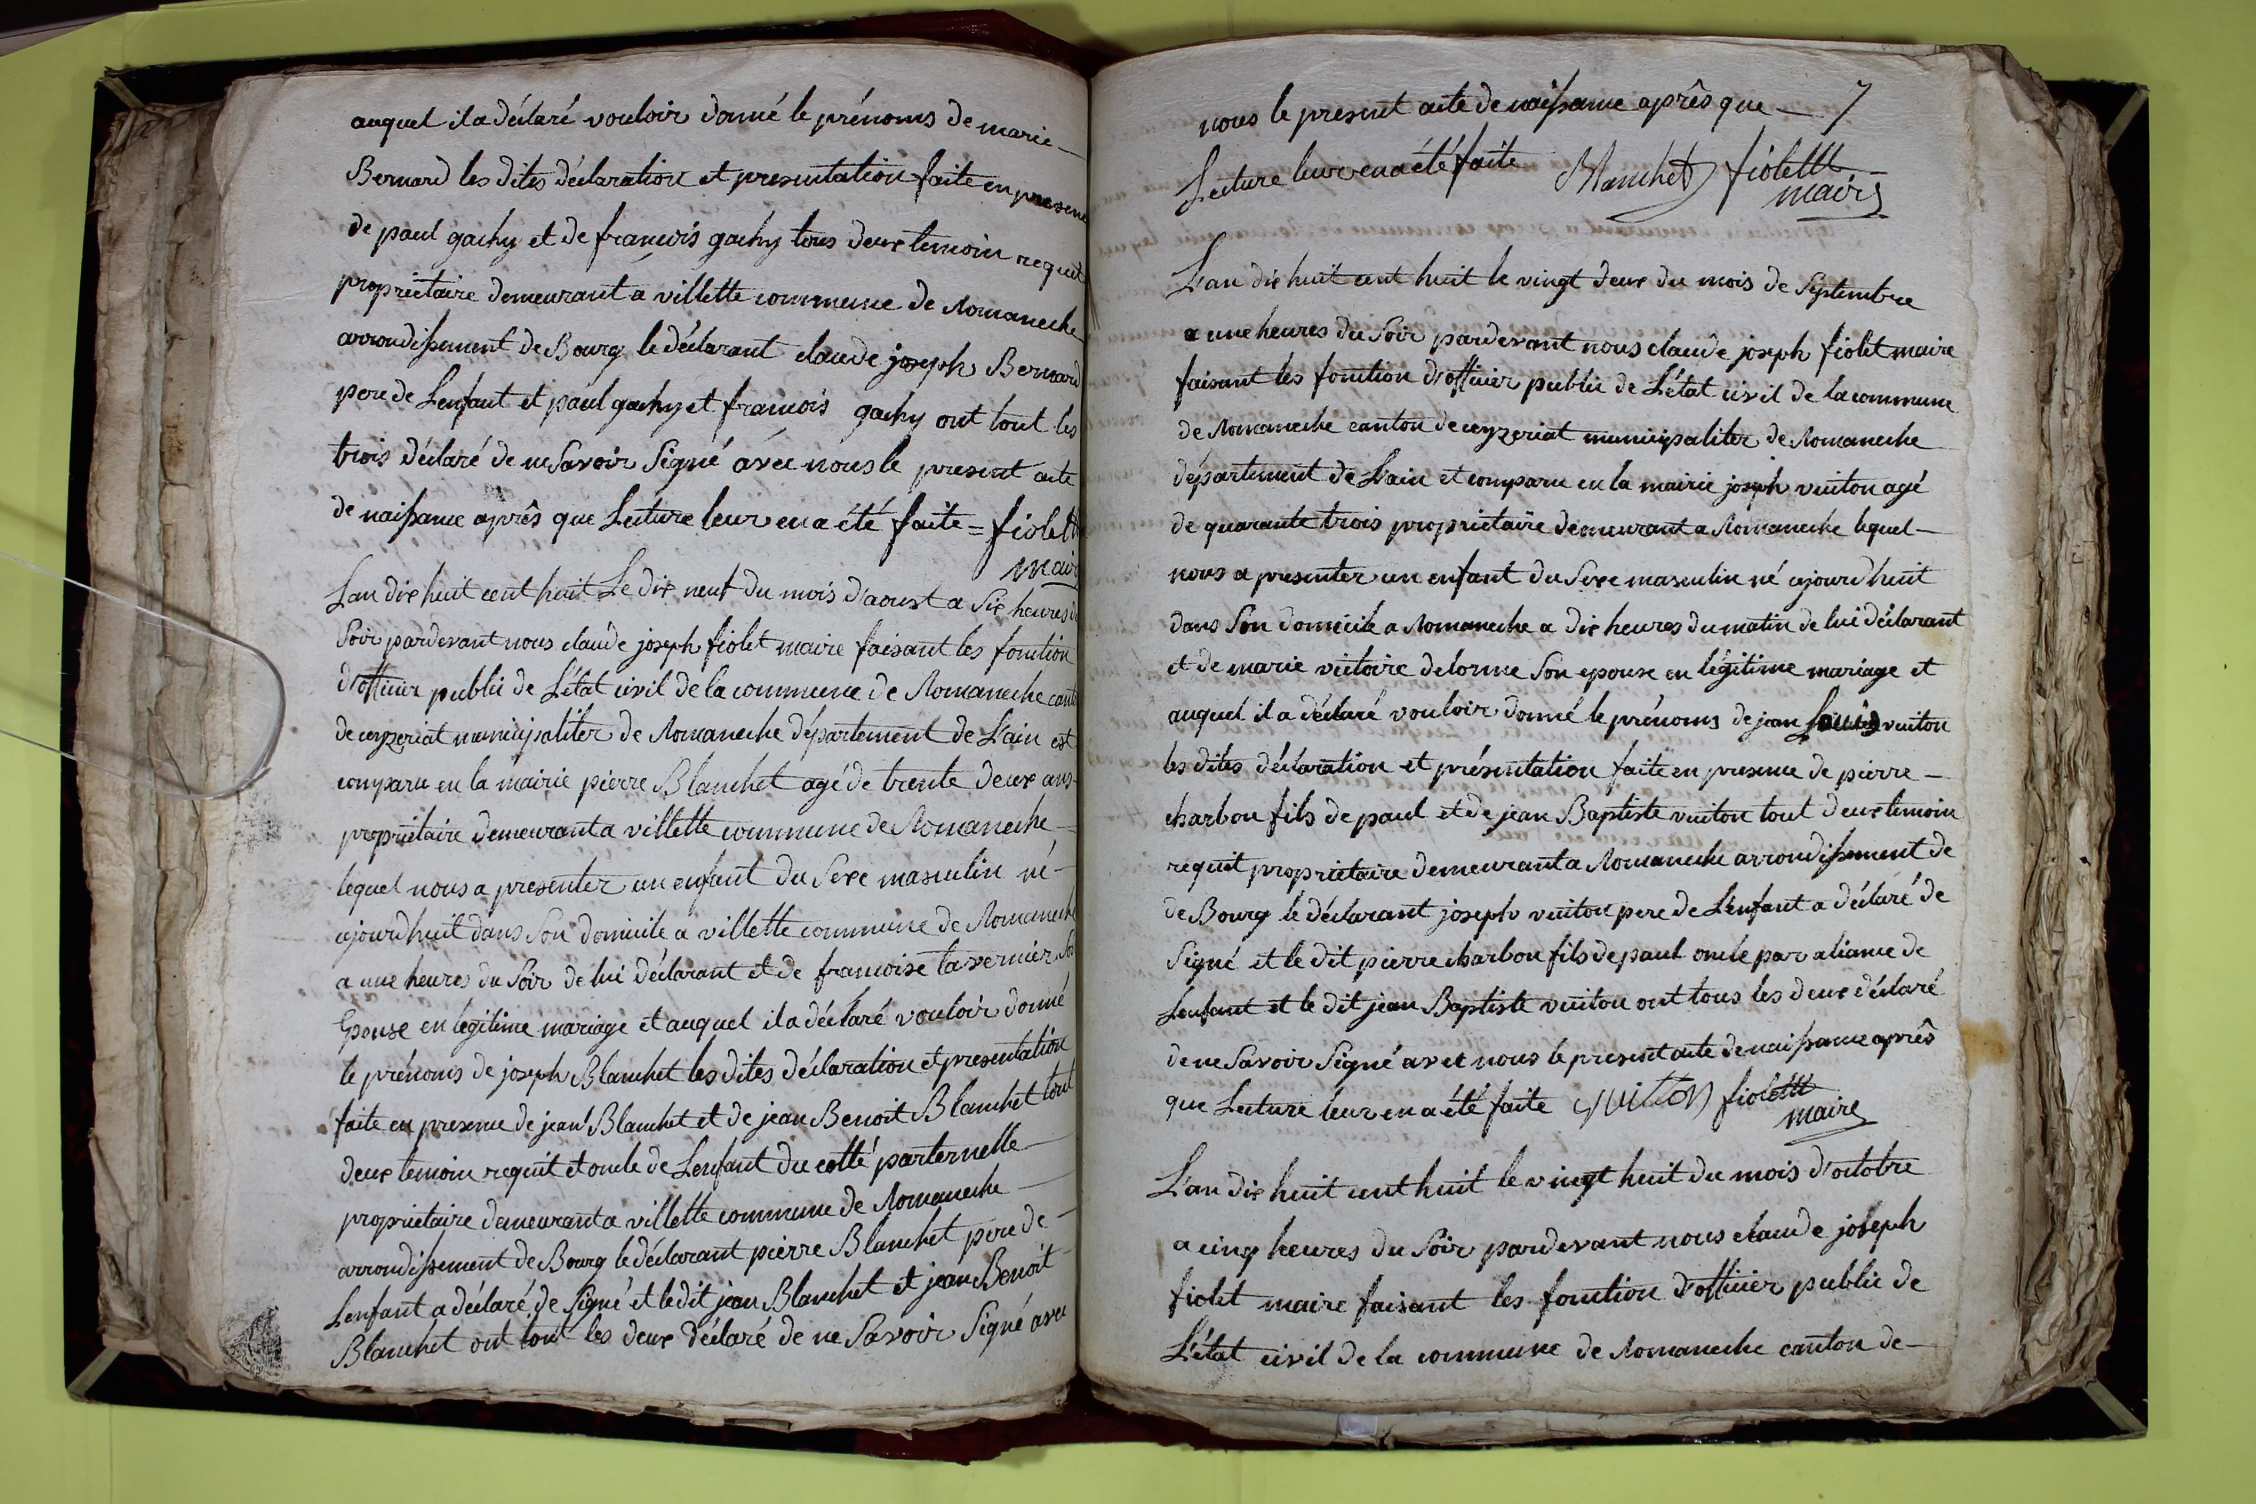 auquel il a déclaré vouloir donné le prénoms de marie
Bernard les dites déclaration et presentation faite en presence
de paul gachy et de francois gachy tous deux temoin requit
proprietaire demeurant a villette commune de Romaneche
arrondissement de Bourg le déclarant claude joseph Bernard
pere de Lenfant et paul gachy et francois gachy ont tout les
trois déclaré de ne Savoir Signé avec nous le present acte
de naissance après que Lecture leur en a été faite = fiolet
maire
Lan dix huit cent huit Le dix neuf du mois d'aoust a Six heures du
Soir pardevant nous claude joseph fiolet maire faisant les fonction
d'officier public de L'état civil de la commune de Romaneche canton
de ceyzeriat municipaliter de Romaneche département de L'ain est
comparu en la mairie pierre Blanchet agé de trente deux ans
propriétaire demeurant a villette commune de Romaneche
lequel nous a presenter un enfant du Sexe masculin né
ajourdhuit dans Son domicile a villette commune de Romaneche
a une heures du Soir de lui déclarant et de francoise tavernier Son
Epouse en légitime mariage et auquel il a déclaré vouloir donné
le prénoms de joseph Blanchet les dites déclaration et presentation
faite en presence de jean Blanchet et de jean Benoit Blanchet tout
deux temoin requit et oncle de Lenfant du cotté parternelle
propriétaire demeurant a villette commune de Romaneche
arrondissement de Bourg le déclarant pierre Blanchet pere de
Lenfant a déclaré de Signé et ledit jean Blanchet et jean Benoit
Blanchet ont tout les deux déclaré de ne Savoir Signé avec
nous le present acte de naissance après que 7
Lecture leur en a été faite Blanchet fiolet
maire
L'an dix huit cent huit le vingt deux du mois de Septembre
a une heures du Soir pardevant nous claude joseph fiolet maire
faisant les fonction d'officier public de L'état civil de la commune
de Romaneche canton de ceyzeriat municipaliter de Romaneche
département de L'ain et comparu en la mairie joseph vuiton agé
de quarante trois proprietaire demeurant a Romaneche lequel
nous a presenter un enfant du Sexe masculin né ajourdhuit
dans Son domicile a Romaneche a dix heures du matin de lui déclarant
et de marie victoire delorme Son epouse en légitime mariage et
auquel il a déclaré vouloir donné le prénoms de jean Louis vuiton
les dites déclaration et présentation faite en presence de pierre
charbon fils de paul et de jean Baptiste vuiton tout deux temoin
requit proprietaire demeurant a Romaneche arrondissement de
de Bourg le déclarant joseph vuiton pere de Lenfant a déclaré de
Signé et le dit pierre charbon fils de paul oncle par aliance de
Lenfant et le dit jean Baptiste vuiton ont tous les deux déclaré
de ne Savoir Signé avec nous le present acte de naissance après
que Lecture leur en a été faite vuiton fiolet
maire
L'an dix huit cent huit le vingt huit du mois d'octobre
a cinq heures du Soir pardevant nous claude joseph
fiolet maire faisant les fonction d'officier public de
L'état civil de la commune de Romaneche canton de